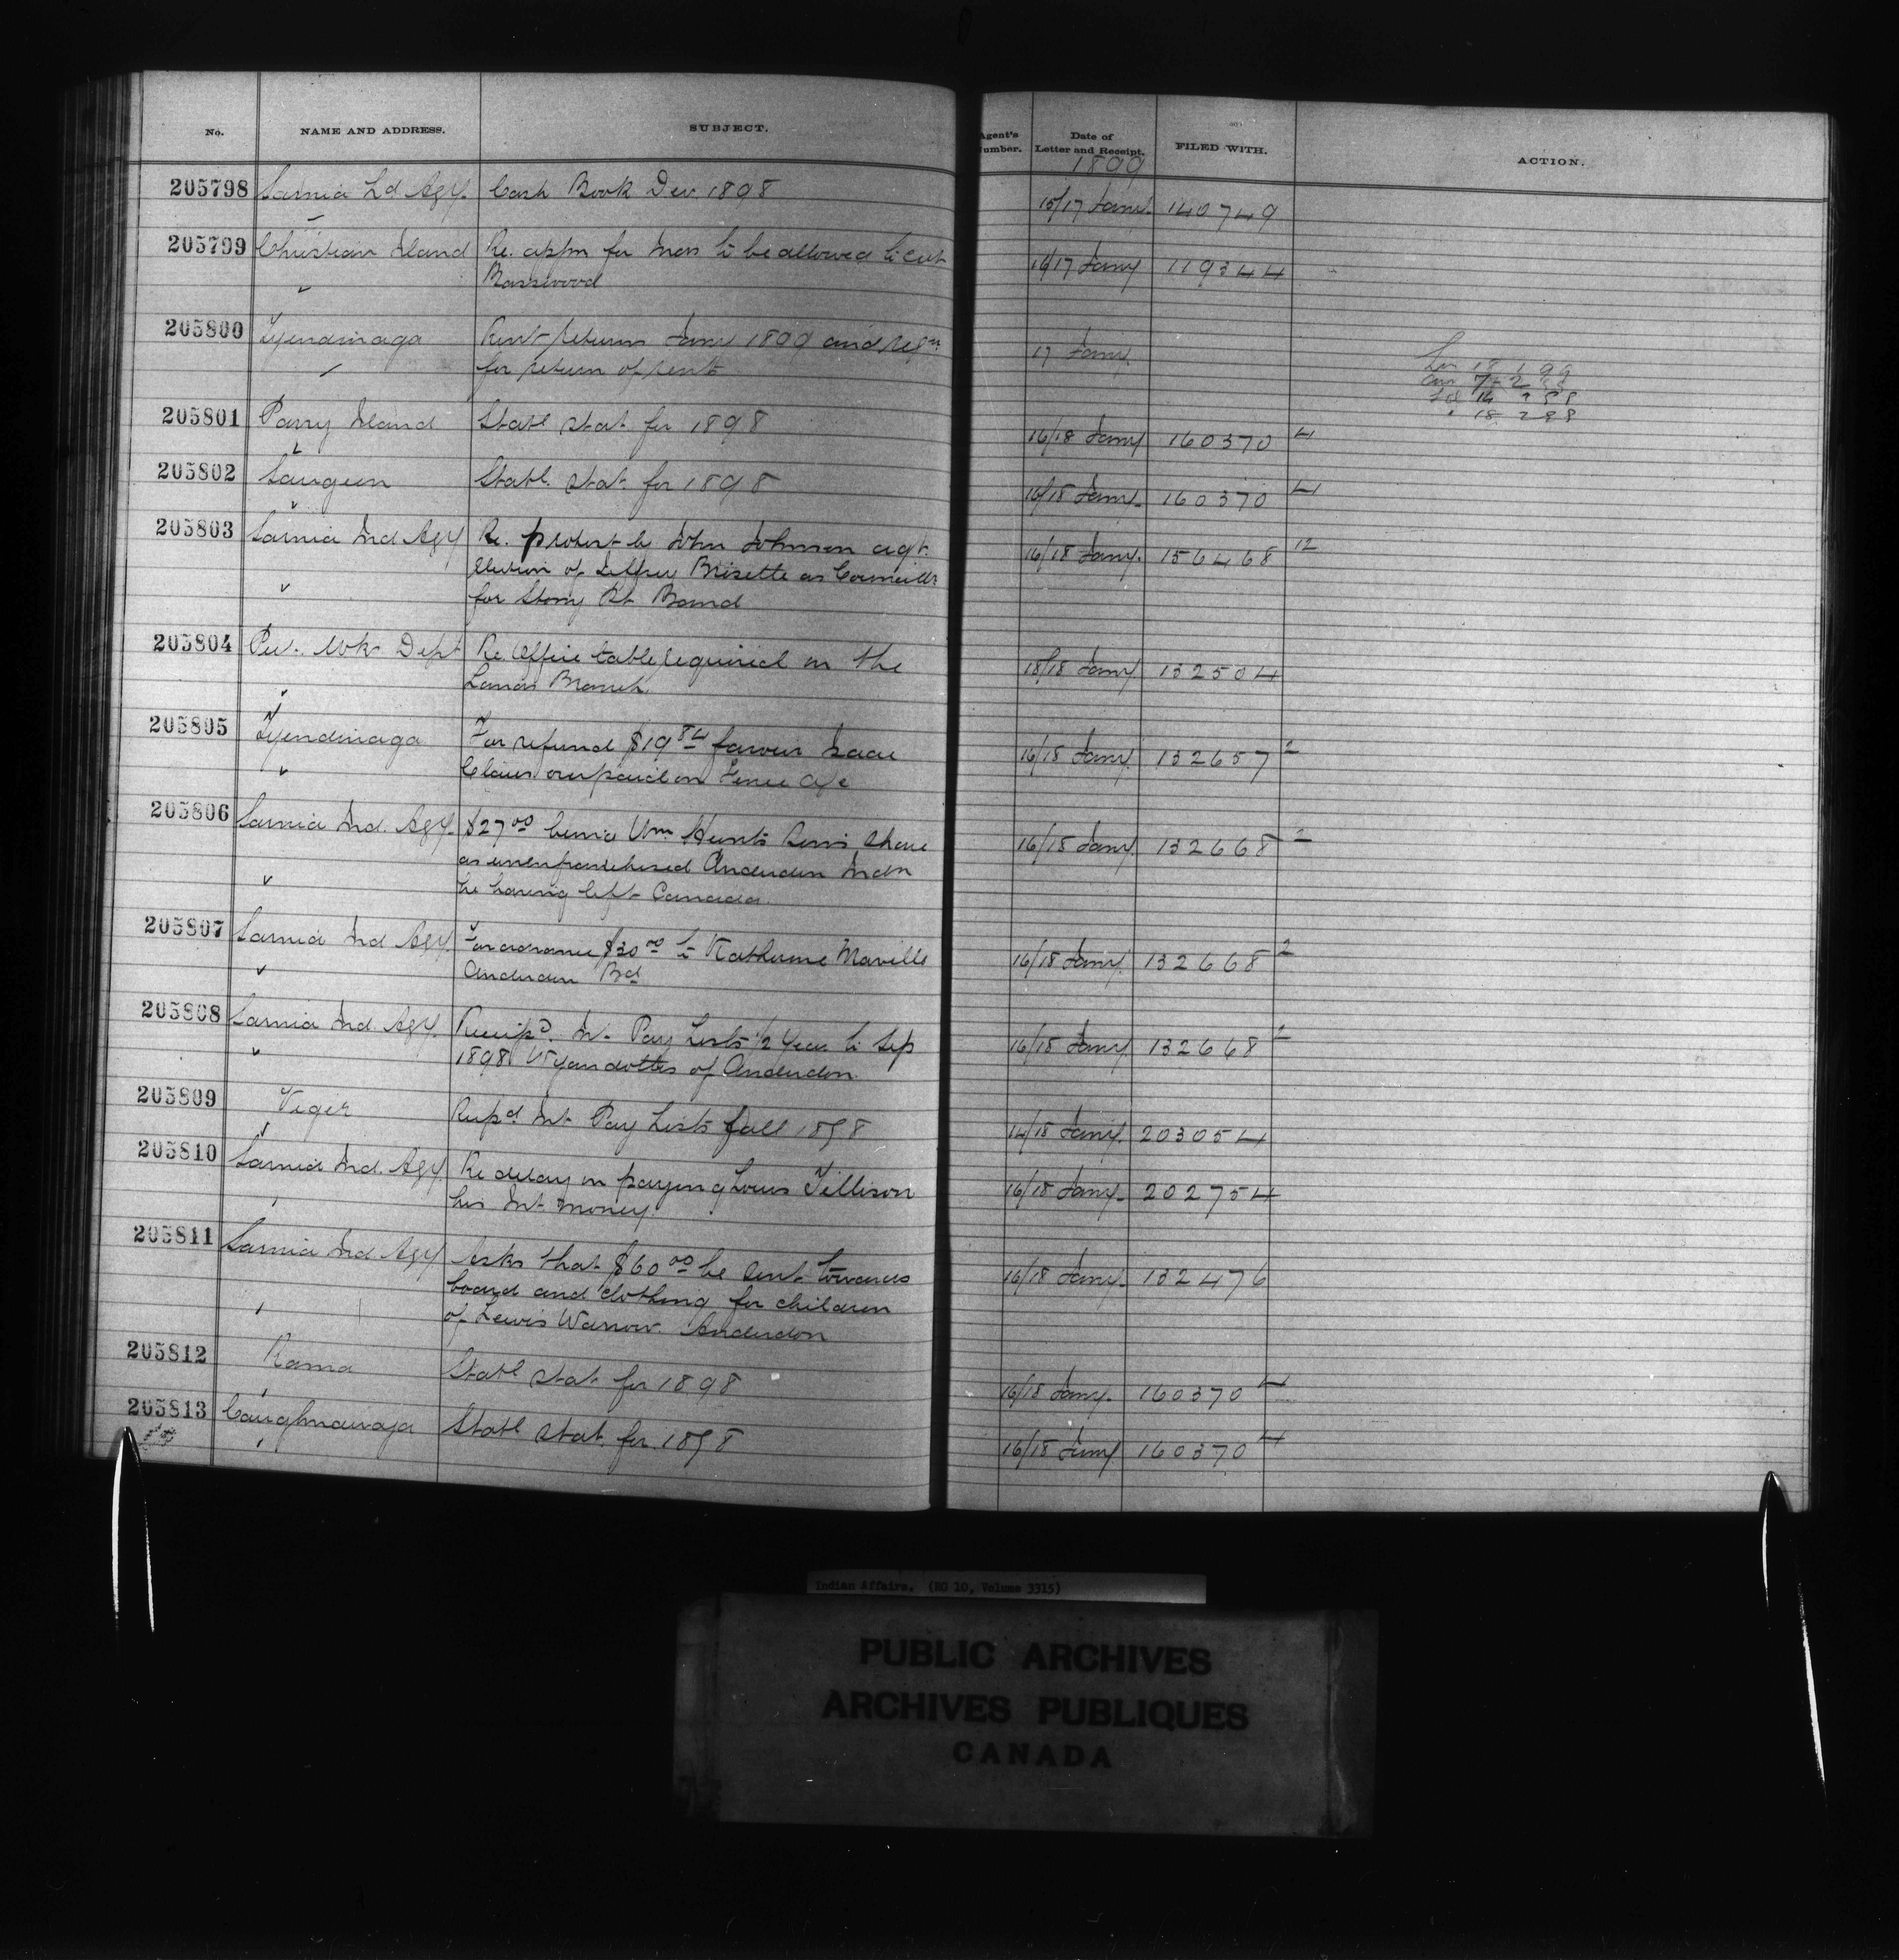 No. NAME AND ADDRESS. SUBJECT. Agent's Number. Date of Letter and Receipt. FILED WITH. ACTION.
1899
205798 Sarnia Ld Agy. Cash Book Dec 1898 15/17 Jany. 140749
205799 Christian Island Re. appln for Inds to be allowed to cut 16/17 Jany 119344
Basswood
205800 Tyendinaga Rent returns Jany 1899 and reqn 17 Jany
for return of rents
18 1 99
7 - 2 98
14 2 98
" 18 2 98
205801 Parry Island Statl stat. for 1898 16/18 Jany 160370 4
205802 Saugeen Statl. stat. for 1898 16/18 Jany. 160370 4
205803 Sarnia Ind Agy Re. protest by John Johnson agt. 16/18 Jany. 156468 12
Election of Brisette as Councillr
for Stony Pt Band
205804 Pub. Wks Dept Re Office table required in the 18/18 Jany 132504
Lands Branch
205805 Tyendinaga For refund $19 84 favour Isaac 16/18 Jany. 132657 2
Claus overpaid on Fence a/c
205806 Sarnia Ind. Agy. $27 00 being Wm Hunts Sems share 16/18 Jany. 132668 2
as unenfranchised Anderdon Indn
he having left Canada.
205807 Sarnia Ind Agy. For advance $30 00 to Katherine Maville 16/18 Jany. 132668 2
Anderdon Bd
205808 Sarnia Ind. Agy. Receipd. Int. Pay Lists 1/2 Year to Sep 16/18 Jany. 132668 2
1898 Wyandottes of Anderdon.
205809 Viger Recpd Int Pay Lists fall 1898 14/18 Jany. 203054
205810 Sarnia Ind. Agy Re delay in paying Louis Tellison 16/18 Jany. 202754
his Int. money.
205811 Sarnia Ind Agy Asks that $60 00 be sent towards 16/18 Jany. 132476
board and clothing for children
of Lewis Warrow. Anderdon
205812 Rama Statl stat. for 1898 16/18 Jany. 160370 4
205813 Caughnawaga Statl stat. for 1898 16/18 Jany 160370 4
Indian Affairs. (RG 10, Volume 3315)
PUBLIC ARCHIVES
ARCHIVES PUBLIQUES
CANADA